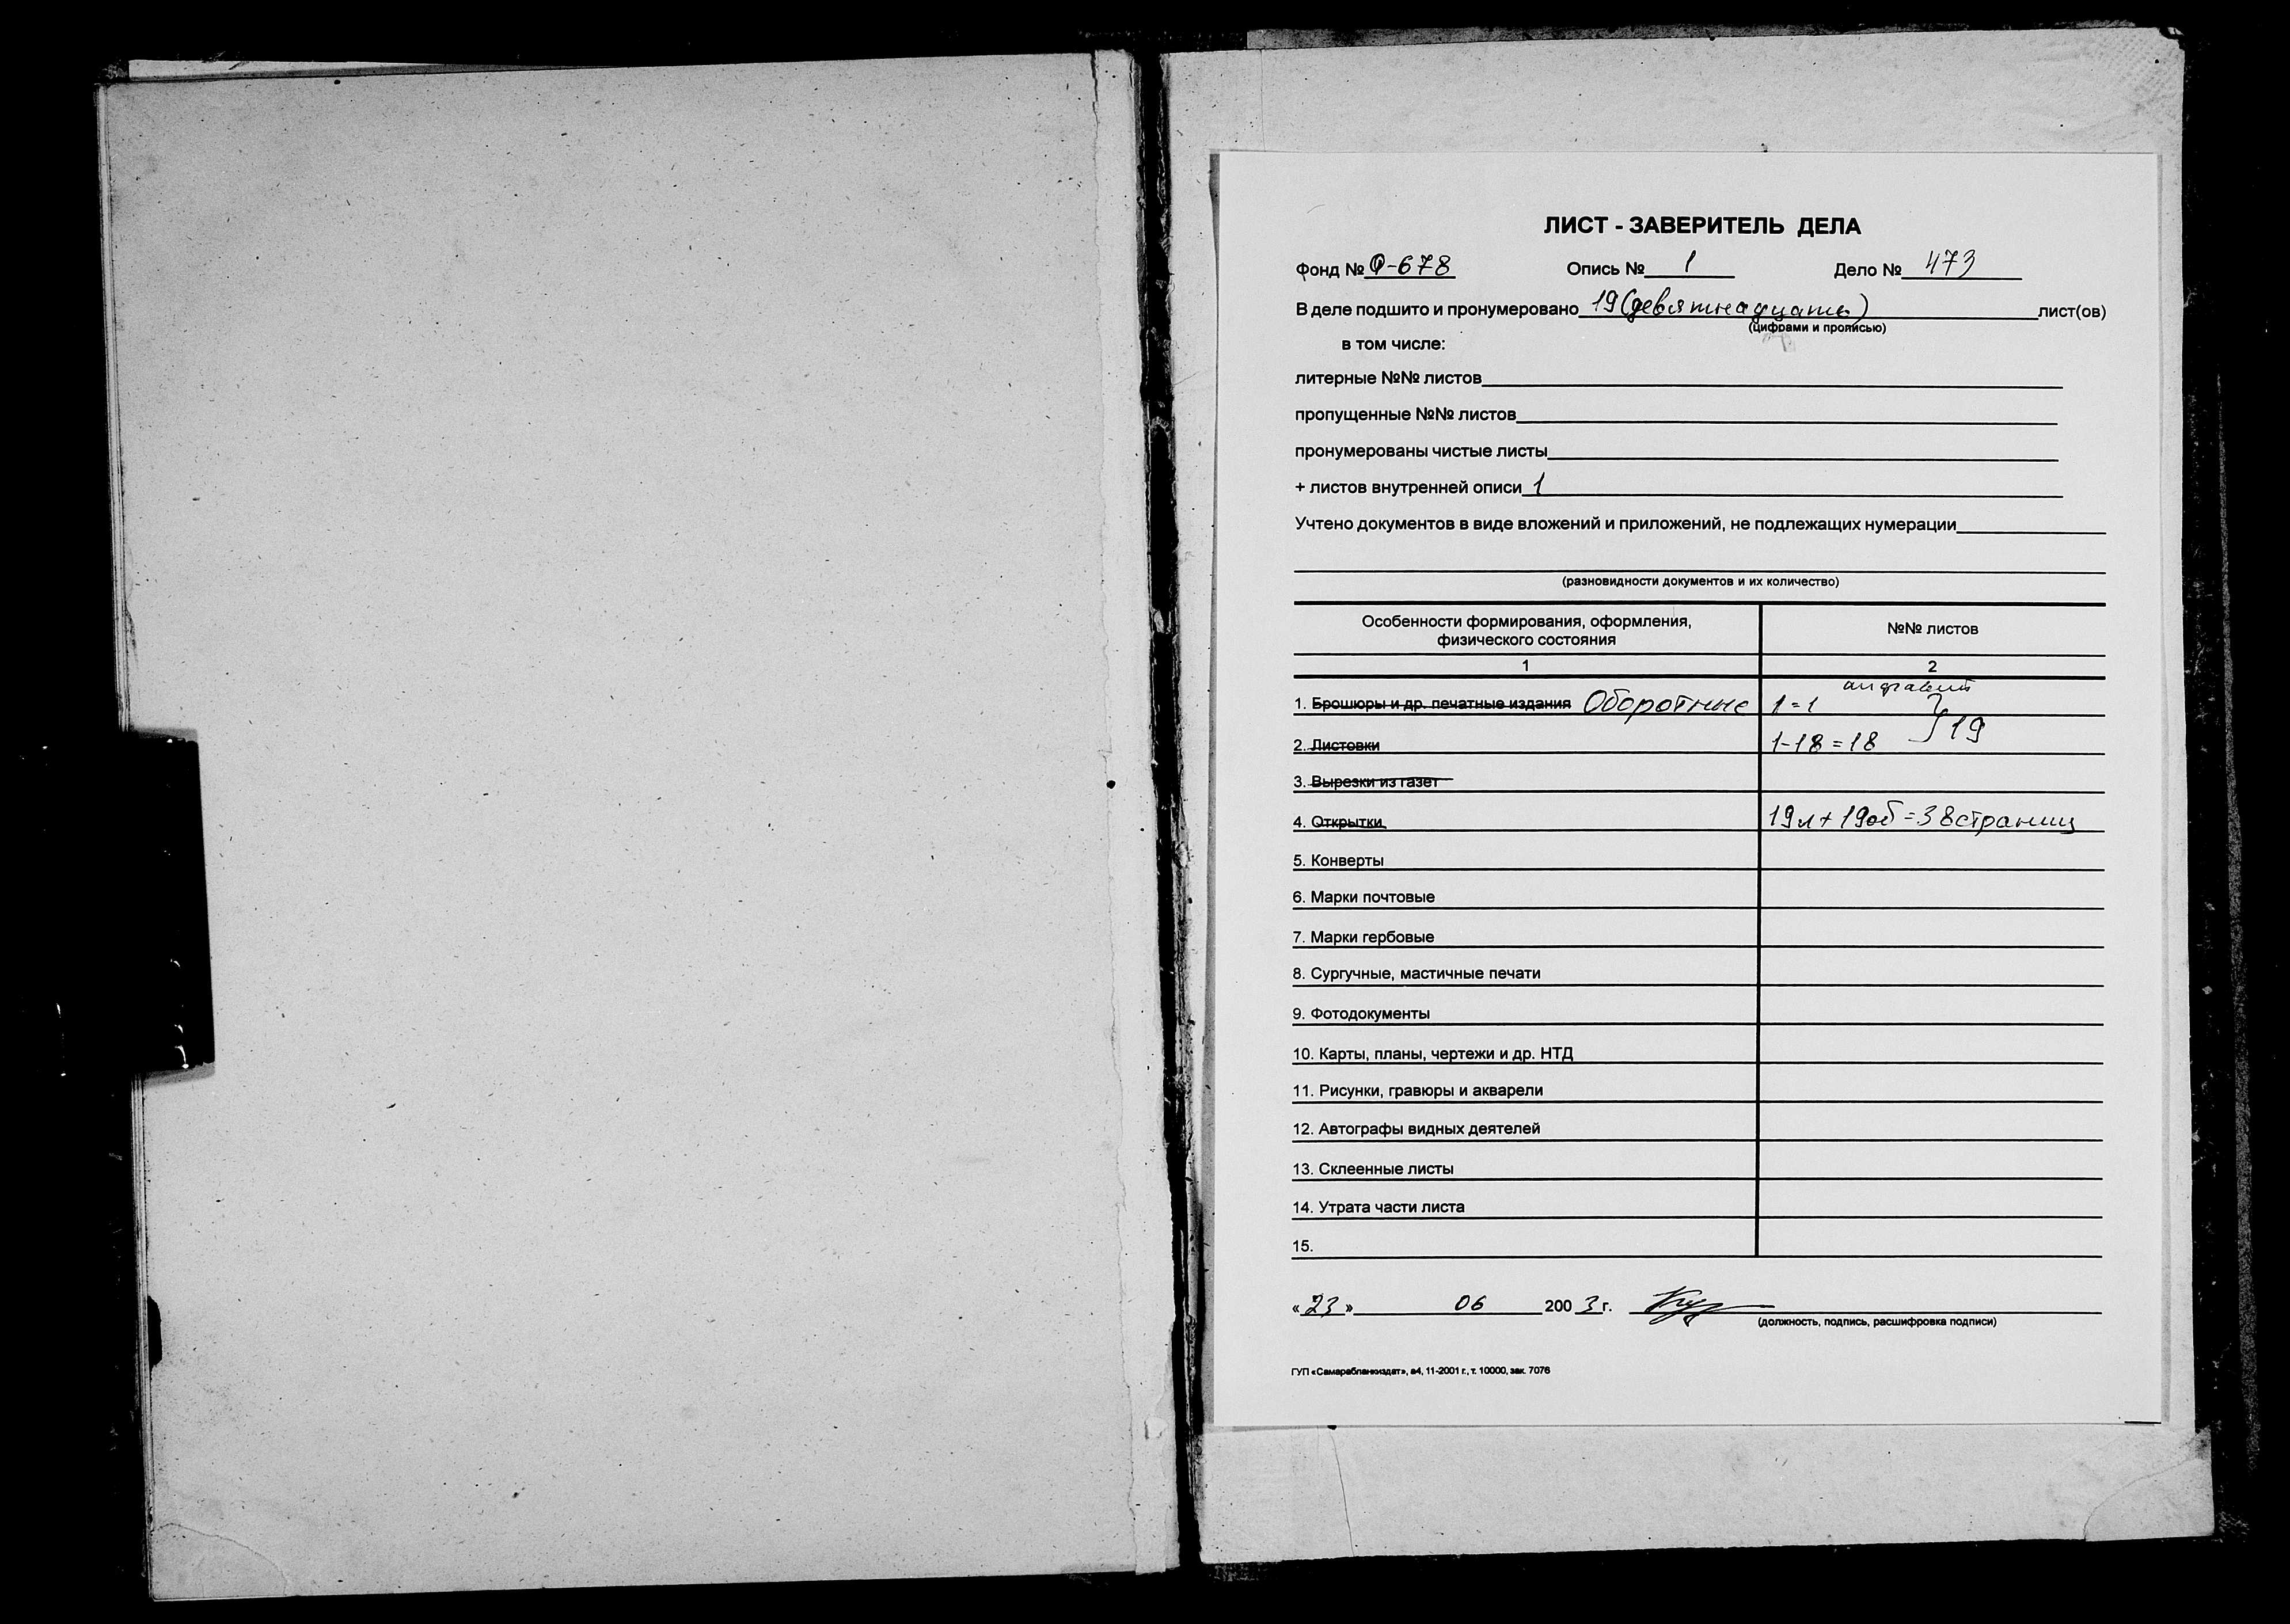 ЛИСТ - ЗАВЕРИТЕЛЬ ДЕЛА
Фонд № Ф-678 Опись № 1 Дело № 473
В деле подшито и пронумеровано 19 (девятнадцать) лист(ов)
(цифрами и прописью)
в том числе:
литерные №№ листов
пропущенные №№ листов
пронумерованы чистые листы
+ листов внутренней описи 1
Учтено документов в виде вложений и приложений, не подлежащих нумерации
(разновидности документов и их количество)
Особенности формирования, оформления, физического состояния №№ листов
1 2
1. Брошюры и др. печатные издания Оборотные 1=1
2. Листовки 1-18=18 } 19
3. Вырезки из газет
4. Открытки 19л + 19об = 38 страниц
5. Конверты
6. Марки почтовые
7. Марки гербовые
8. Сургучные, мастичные печати
9. Фотодокументы
10. Карты, планы, чертежи и др. НТД
11. Рисунки, гравюры и акварели
12. Автографы видных деятелей
13. Склеенные листы
14. Утрата части листа
15.
« 23 » 06 200 3 г.
(должность, подпись, расшифровка подписи)
ГУП «Самарабланкиздат», а4, 11-2001 г., т. 10000, зак. 7076